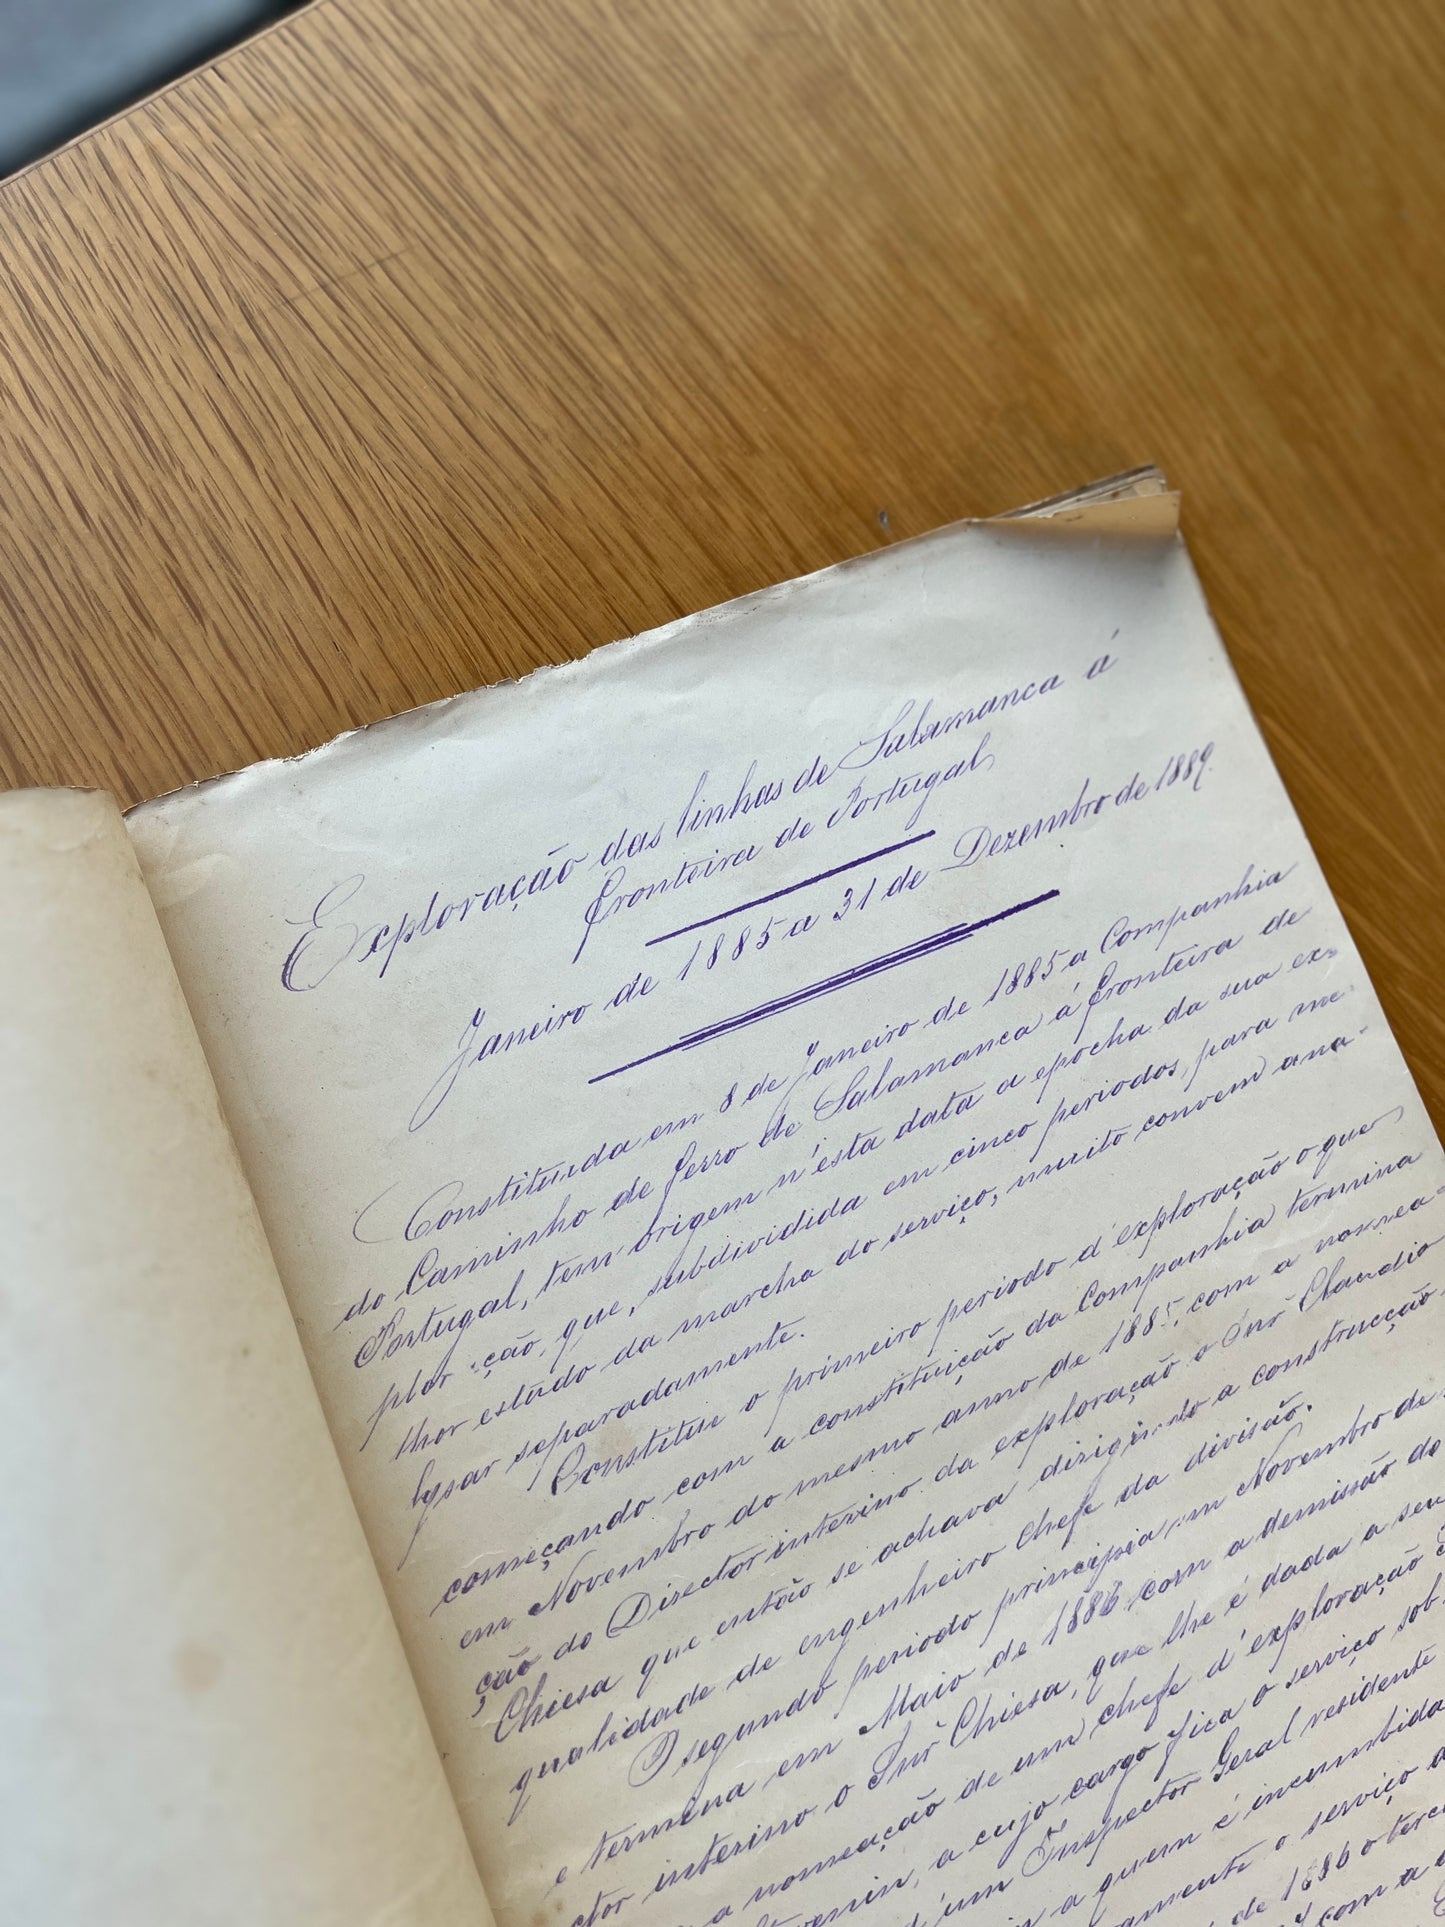 Exploração das linhas de Salamanca á
fronteira de Portugal
Janeiro de 1885 a 31 de Dezembro de 1889.
Constituida em 8 de Janeiro de 1885 a Companhia
do Caminho de ferro de Salamanca á fronteira de
Portugal, tem origem n'esta data a epocha da sua ex-
plor ção, que, subdividida em cinco periodos, para me-
lhor estudo da marcha do serviço, muito convem ana-
lysar separadamente.
Constitue o primeiro periodo d'exploração o que
começando com a constituição da Companhia termina
em Novembro do mesmo anno de 1885, com a nomea-
ção do Director interino da exploração o Snr Claudio
Chiesa que então se achava dirigindo a construcção
qualidade de engenheiro chefe da divisão.
O segundo periodo principia em Novembro de
e termina em Maio de 1886 com a demissão de
ctor interino o Snr Chiesa, que lhe é dada a seu
a nomeação de um chefe d'exploração
a cujo cargo fica o serviço sob
d'um Inspector Geral residente
a quem é incumbida
o serviço a
de 1886 o terc
com a